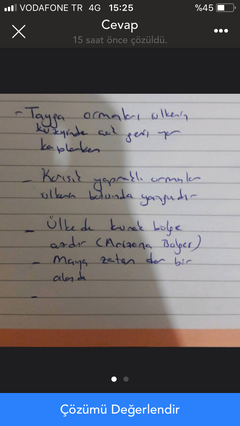 VODAFONE TR 4G 15:25 %45
Cevap
15 saat önce çözüldü.
- Tayga ormanları ülkenin
kuzeyinde çok geniş yer
kaplarken
- Karışık yapraklı ormanlar
ülkenin batısında yaygındır
- Ülkede kurak bölge
azdır (Arizona Bölgesi)
- Maya zaten dar bir
alanda
-
Çözümü Değerlendir